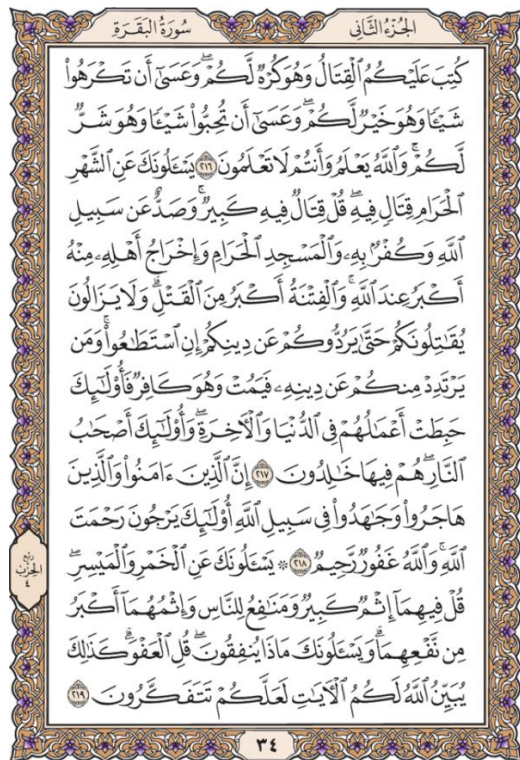 الجُزْءُ الثَّانِي
سُورَةُ البَقَرَةِ
كُتِبَ عَلَيْكُمُ ٱلْقِتَالُ وَهُوَ كُرْهٌ لَّكُمْ ۖ وَعَسَىٰٓ أَن تَكْرَهُوا۟
شَيْـًٔا وَهُوَ خَيْرٌ لَّكُمْ ۖ وَعَسَىٰٓ أَن تُحِبُّوا۟ شَيْـًٔا وَهُوَ شَرٌّ
لَّكُمْ ۗ وَٱللَّهُ يَعْلَمُ وَأَنتُمْ لَا تَعْلَمُونَ ٢١٦ يَسْـَٔلُونَكَ عَنِ ٱلشَّهْرِ
ٱلْحَرَامِ قِتَالٍ فِيهِ ۖ قُلْ قِتَالٌ فِيهِ كَبِيرٌ ۖ وَصَدٌّ عَن سَبِيلِ
ٱللَّهِ وَكُفْرٌۢ بِهِۦ وَٱلْمَسْجِدِ ٱلْحَرَامِ وَإِخْرَاجُ أَهْلِهِۦ مِنْهُ
أَكْبَرُ عِندَ ٱللَّهِ ۚ وَٱلْفِتْنَةُ أَكْبَرُ مِنَ ٱلْقَتْلِ ۗ وَلَا يَزَالُونَ
يُقَـٰتِلُونَكُمْ حَتَّىٰ يَرُدُّوكُمْ عَن دِينِكُمْ إِنِ ٱسْتَطَـٰعُوا۟ ۚ وَمَن
يَرْتَدِدْ مِنكُمْ عَن دِينِهِۦ فَيَمُتْ وَهُوَ كَافِرٌ فَأُو۟لَـٰٓئِكَ
حَبِطَتْ أَعْمَـٰلُهُمْ فِى ٱلدُّنْيَا وَٱلْـَٔاخِرَةِ ۖ وَأُو۟لَـٰٓئِكَ أَصْحَـٰبُ
ٱلنَّارِ ۖ هُمْ فِيهَا خَـٰلِدُونَ ٢١٧ إِنَّ ٱلَّذِينَ ءَامَنُوا۟ وَٱلَّذِينَ
هَاجَرُوا۟ وَجَـٰهَدُوا۟ فِى سَبِيلِ ٱللَّهِ أُو۟لَـٰٓئِكَ يَرْجُونَ رَحْمَتَ
ٱللَّهِ ۚ وَٱللَّهُ غَفُورٌ رَّحِيمٌ ٢١٨ ۞ يَسْـَٔلُونَكَ عَنِ ٱلْخَمْرِ وَٱلْمَيْسِرِ ۖ
قُلْ فِيهِمَآ إِثْمٌ كَبِيرٌ وَمَنَـٰفِعُ لِلنَّاسِ وَإِثْمُهُمَآ أَكْبَرُ
مِن نَّفْعِهِمَا ۗ وَيَسْـَٔلُونَكَ مَاذَا يُنفِقُونَ ۖ قُلِ ٱلْعَفْوَ ۗ كَذَٰلِكَ
يُبَيِّنُ ٱللَّهُ لَكُمُ ٱلْـَٔايَـٰتِ لَعَلَّكُمْ تَتَفَكَّرُونَ ٢١٩
ربع
الحزب
٤
٣٤